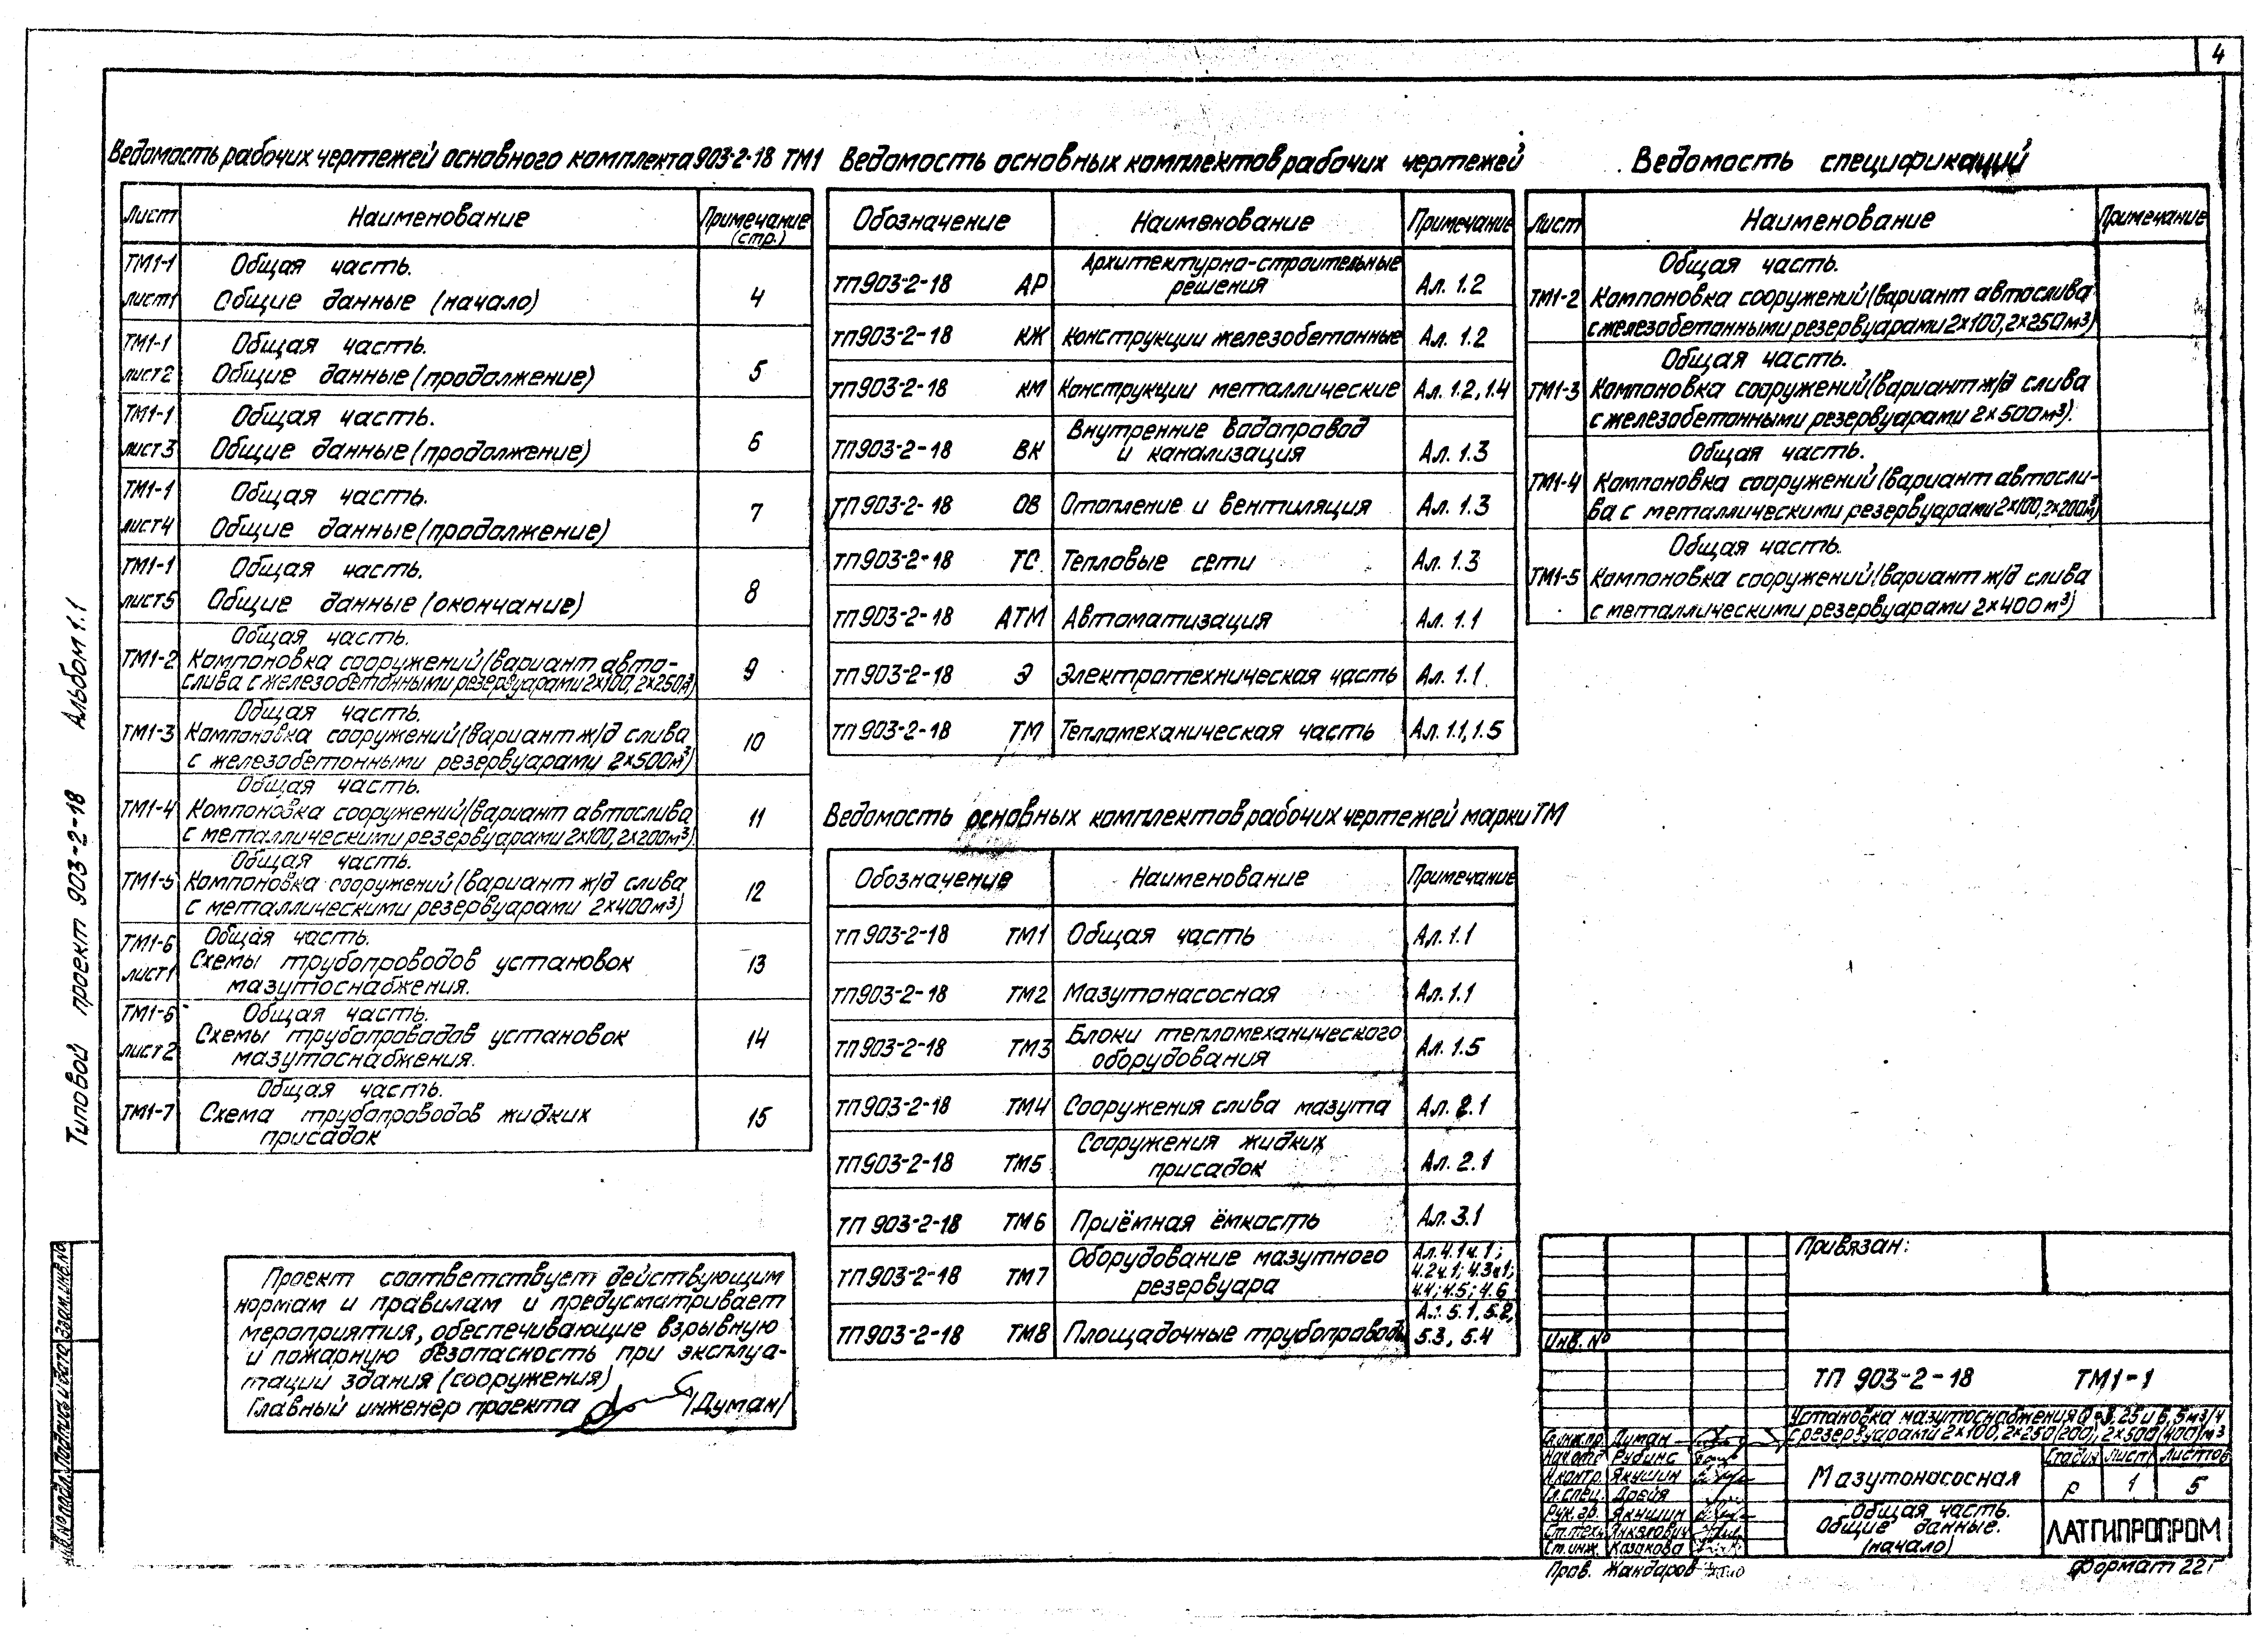 4
Ведомость рабочих чертежей основного комплекта 903-2-18 ТМ1
Лист Наименование Примечание (стр.)
ТМ1-1 Общая часть.
лист1 Общие данные (начало) 4
ТМ1-1 Общая часть.
лист2 Общие данные (продолжение) 5
ТМ1-1 Общая часть.
лист3 Общие данные (продолжение) 6
ТМ1-1 Общая часть.
лист4 Общие данные (продолжение) 7
ТМ1-1 Общая часть.
лист5 Общие данные (окончание) 8
Общая часть.
ТМ1-2 Компоновка сооружений (вариант авто-
слива с железобетонными резервуарами 2×100, 2×250м³) 9
Общая часть.
ТМ1-3 Компоновка сооружений (вариант ж/д слива
с железобетонными резервуарами 2×500м³) 10
Общая часть.
ТМ1-4 Компоновка сооружений (вариант автослива
с металлическими резервуарами 2×100, 2×200м³). 11
Общая часть.
ТМ1-5 Компоновка сооружений (вариант ж/д слива
с металлическими резервуарами 2×400м³) 12
ТМ1-6 Общая часть.
лист1 Схемы трубопроводов установок 13
мазутоснабжения.
ТМ1-6 Общая часть.
лист2 Схемы трубопроводов установок 14
мазутоснабжения.
Общая часть.
ТМ1-7 Схема трубопроводов жидких 15
присадок
Ведомость основных комплектов рабочих чертежей
Обозначение Наименование Примечание
Архитектурно-строительные
ТП903-2-18 АР решения Ал. 1.2
ТП903-2-18 КЖ Конструкции железобетонные Ал. 1.2
ТП903-2-18 КМ Конструкции металлические Ал. 1.2, 1.4
Внутренние водопровод
ТП903-2-18 ВК и канализация Ал. 1.3
ТП903-2-18 ОВ Отопление и вентиляция Ал. 1.3
ТП903-2-18 ТС Тепловые сети Ал. 1.3
ТП903-2-18 АТМ Автоматизация Ал. 1.1
ТП903-2-18 Э Электротехническая часть Ал. 1.1
ТП903-2-18 ТМ Тепломеханическая часть Ал. 1.1, 1.5
Ведомость основных комплектов рабочих чертежей марки ТМ
Обозначение Наименование Примечание
ТП 903-2-18 ТМ1 Общая часть Ал. 1.1
ТП903-2-18 ТМ2 Мазутонасосная Ал. 1.1
Блоки тепломеханического
ТП903-2-18 ТМ3 оборудования Ал. 1.5
ТП903-2-18 ТМ4 Сооружения слива мазута Ал. 2.1
Сооружения жидких
ТП903-2-18 ТМ5 присадок Ал. 2.1
ТП 903-2-18 ТМ6 Приёмная ёмкость Ал. 3.1
Оборудование мазутного Ал. 4.1ч.1;
ТП903-2-18 ТМ7 резервуара 4.2ч.1; 4.3ч1;
4.4; 4.5; 4.6
Ал. 5.1, 5.2,
ТП903-2-18 ТМ8 Площадочные трубопроводы 5.3, 5.4
Ведомость спецификаций
Лист Наименование Примечание
Общая часть.
ТМ1-2 Компоновка сооружений (вариант автослива
с железобетонными резервуарами 2×100, 2×250м³)
Общая часть.
ТМ1-3 Компоновка сооружений (вариант ж/д слива
с железобетонными резервуарами 2×500м³).
Общая часть.
ТМ1-4 Компоновка сооружений (вариант автосли-
ва с металлическими резервуарами 2×100, 2×200м³)
Общая часть.
ТМ1-5 Компоновка сооружений (вариант ж/д слива
с металлическими резервуарами 2×400м³)
Проект соответствует действующим
нормам и правилам и предусматривает
мероприятия, обеспечивающие взрывную
и пожарную безопасность при эксплуа-
тации здания (сооружения)
Главный инженер проекта /Думан/
Типовой проект 903-2-18 Альбом 1.1
Инв.№ подл. Подпись и дата Взам.инв.№
Привязан:
Инв. №
ТП 903-2-18 ТМ1-1
Установка мазутоснабжения Q=3,25 и 6,5м3/ч
с резервуарами 2×100, 2×250(200), 2×500(400)м3
Гл.инж.пр. Думан
Нач.отд Рубинс
Н.контр. Якушин
Гл.спец. Дрейя
Рук.гр. Якушин
Ст.техн
Ст.инж. Казакова
Пров. Жандаров
Мазутонасосная
Стадия Лист Листов
Р 1 5
Общая часть.
Общие данные.
(начало)
ЛАТГИПРОПРОМ
Формат 22Г